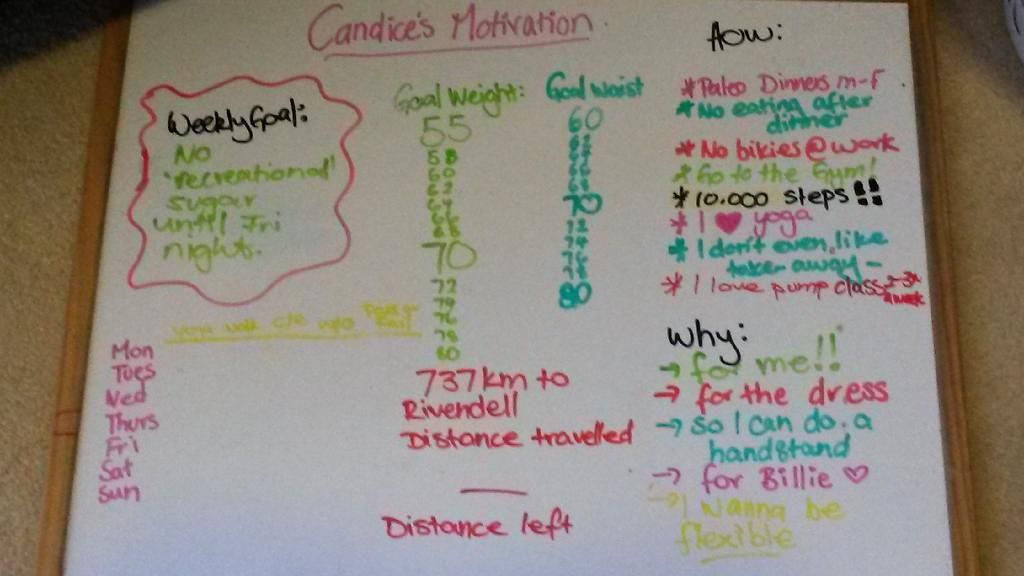 Candice's Motivation
Weekly Goal:
No
'recreational'
sugar
until Fri
night.
Mon
Tues
Wed
Thurs
Fri
Sat
Sun
Goal Weight:
55
58
60
62
70
72
76
78
80
737km to
Rivendell
Distance travelled
Distance left
Goal Waist
60
70
72
74
76
78
80
How:
* Paleo Dinners m-f
* No eating after
dinner
* No bikies @ work
* Go to the Gym!
* 10.000 steps !!
* I ♥ yoga
* I don't even like
take-away -
* I love pump class
a week
Why:
→ for me!!
→ for the dress
→ so I can do a
handstand
→ for Billie ♡
→ I wanna be
flexible